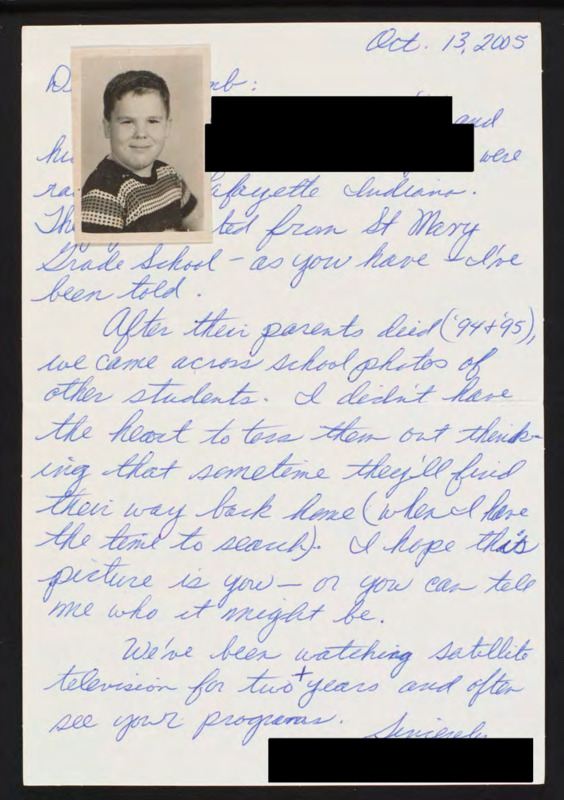 Oct. 13, 2005
D mb:
and
hi were
ra afayette Indiana.
Th ted from St Mary
Grade School - as you have - I've
been told.
After their parents died ('94 + '95),
we came across school photos of
other students. I didn't have
the heart to toss them out think-
ing that sometime they'll find
their way back home (when I have
the time to search). I hope this
picture is you — or you can tell
me who it might be.
We've been watching satellite
television for two+ years and often
see your programs.
Sincerely